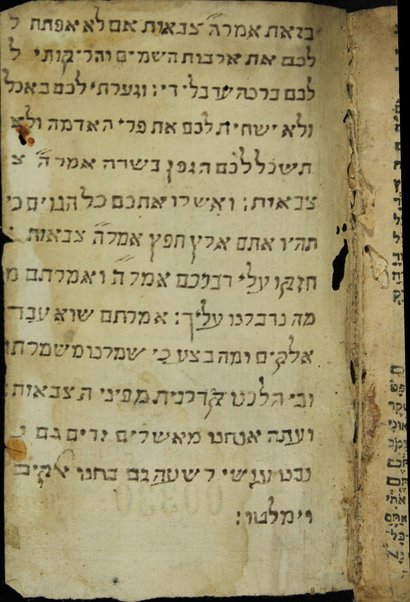 בזאת אמר ה״ צבאות אם לא אפתח ל
לכם את ארבות השמים והריקותי ל
לכם ברכה עד בלי די: וגערתי לכם באכל
ולא ישחית לכם את פרי האדמה ולא
תשכל לכם הגפן בשדה אמר ה״ צ
צבאות: ואשרו אתכם כל הגוים כי
תהיו אתם ארץ חפץ אמר ה״ צבאות
חזקו עלי דבריכם אמר ה ואמרתם מ
מה נדברנו עליך: אמרתם שוא עבד
אלקים ומה בצע כי שמרנו משמרתו
וכי הלכנו קדרנית מפיני ה צבאות:
ועתה אנחנו מאשרים זדים גם
נבנו עושי רשעה גם בחנו אלקים
וימלטו: